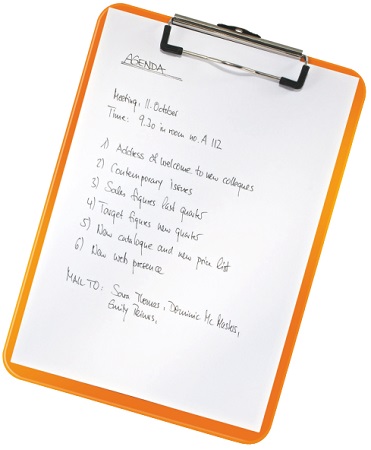 AGENDA
Meeting, 11. October
Time: 9.30 in room no. A 112
1) Address of welcome to new colleques
2) Contemporary Issues
3) Sales figures last quarter
4) Target figures new quarter
5) New catalogue and new price list
6) New web presence
MAIL TO: Sara Thomas, Dominic Mc
Emily